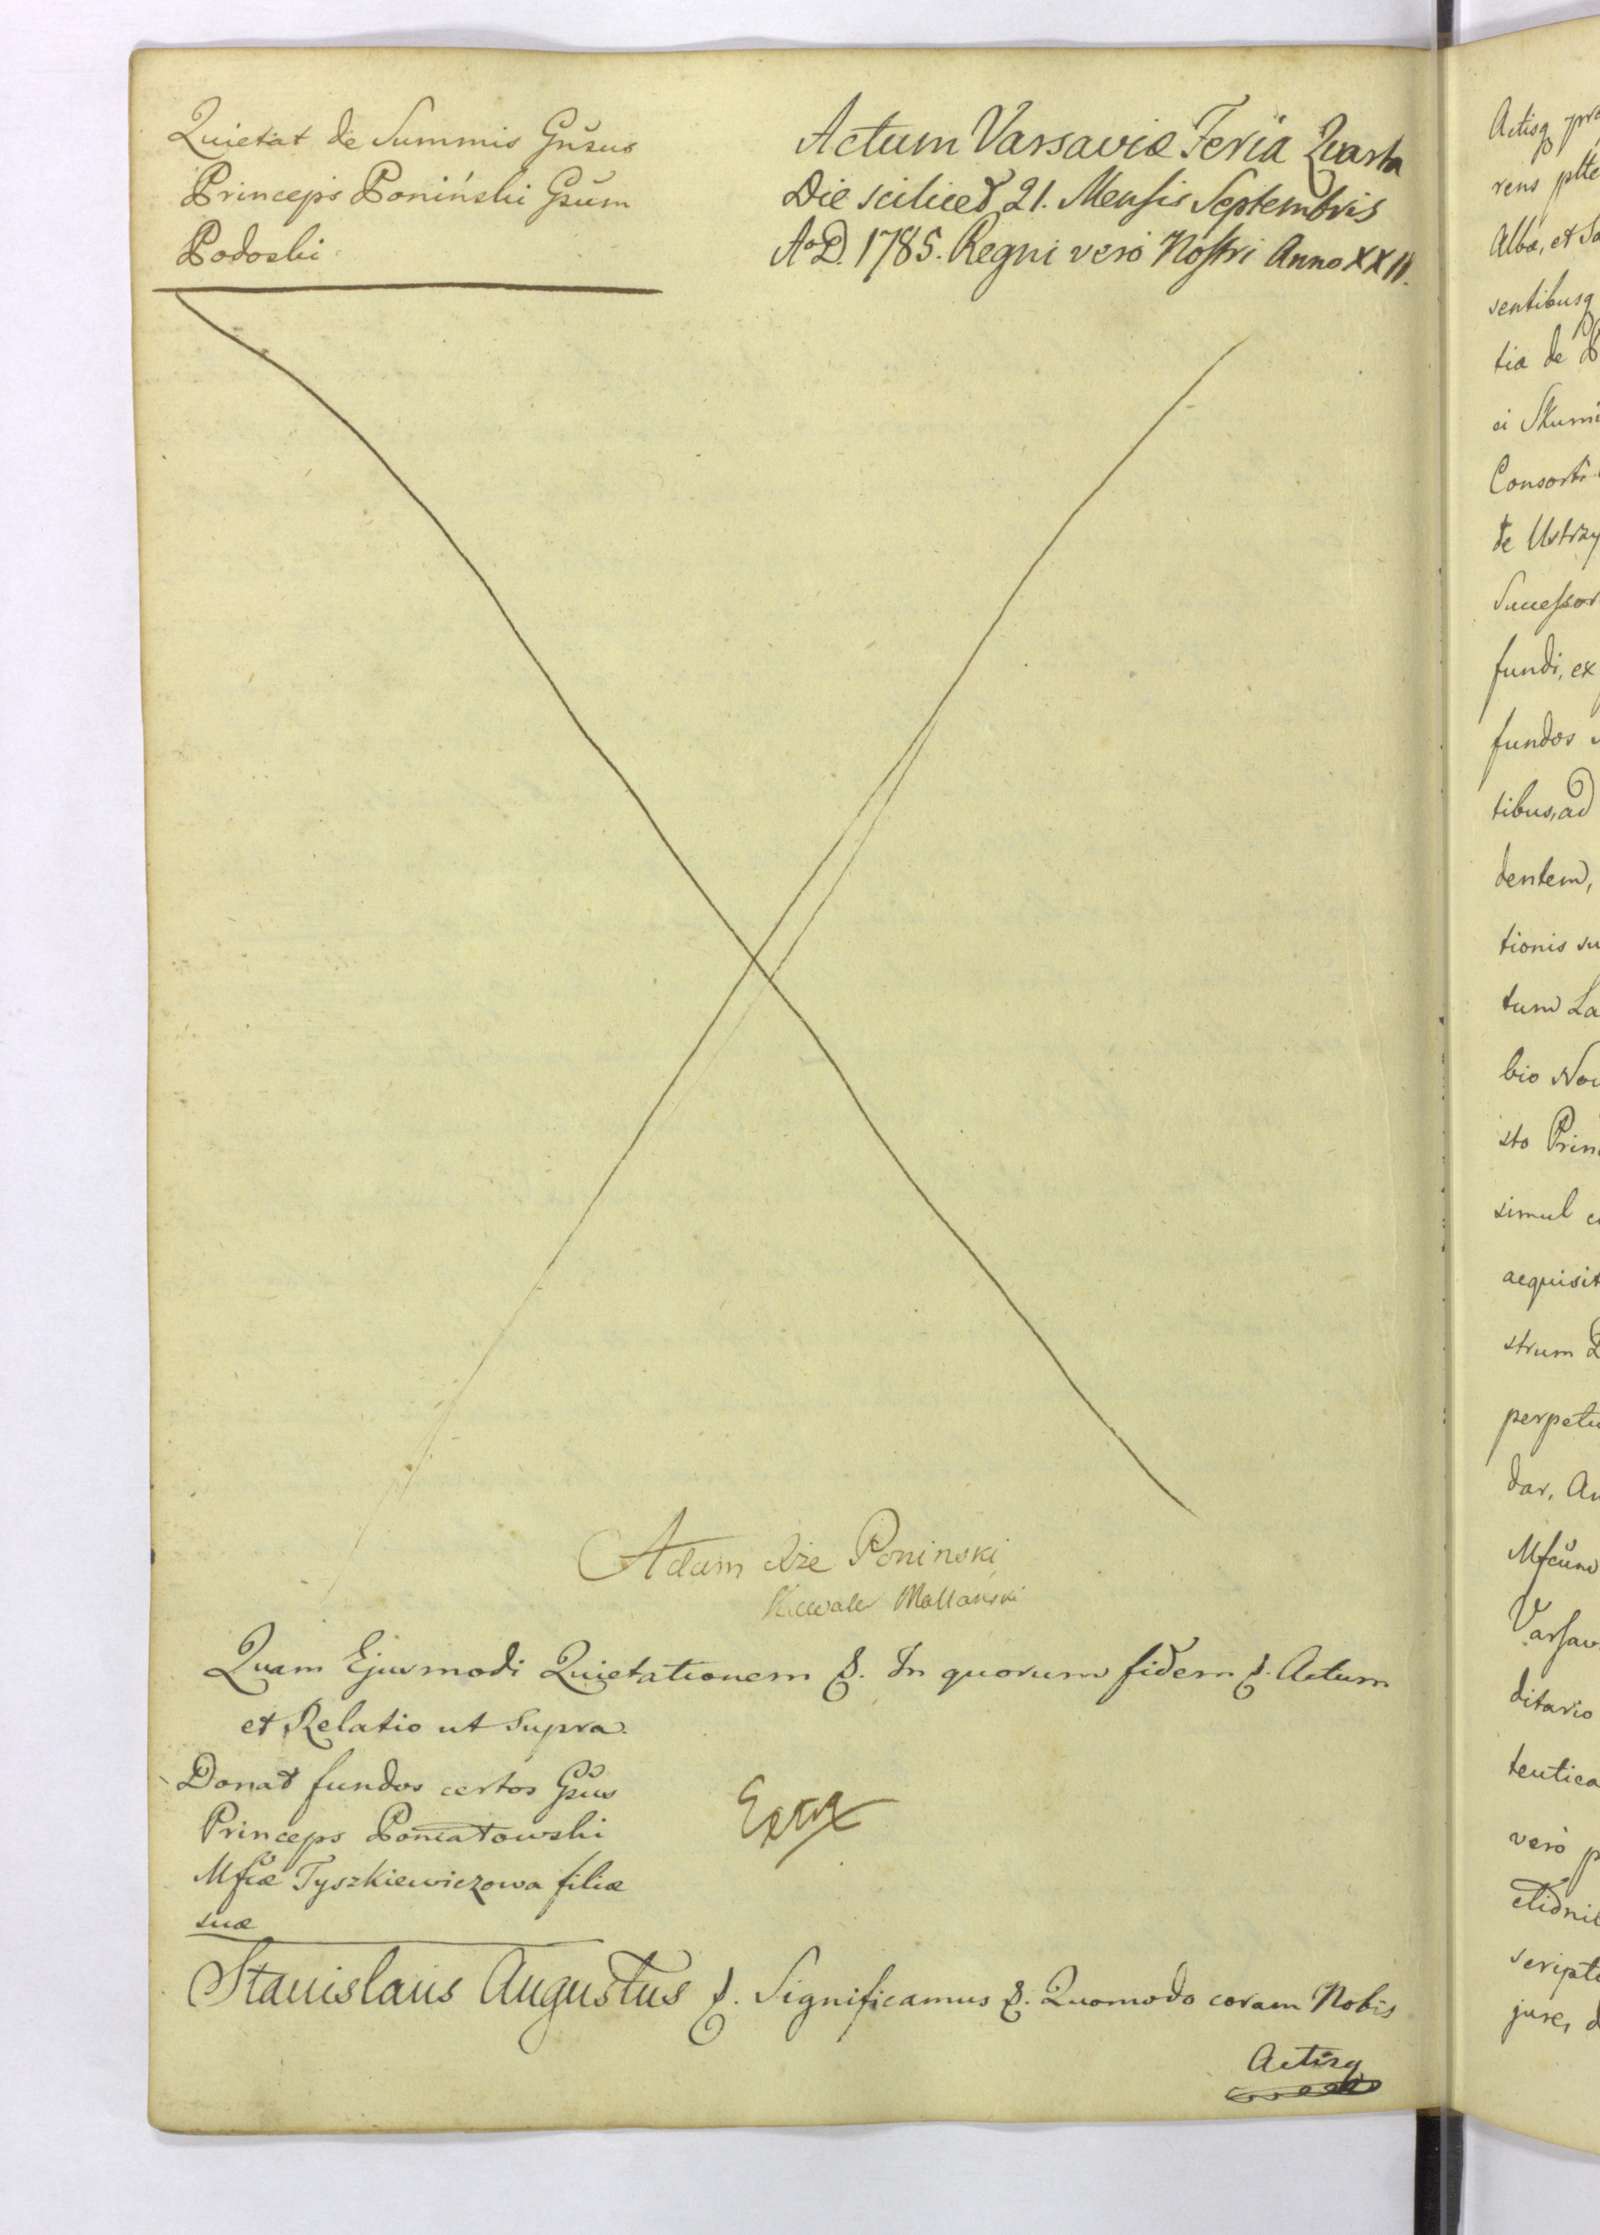 Quietat de Summis Gnsus
Princeps Poniński Gsum
Podoski
Actum Varsaviæ Feria Quarta
Die scilicet 21. Mensis Septembris
Aº D. 1785. Regni vero Nostri Anno XXII.
Adam Xże Poninski
Quam Ejusmodi Quietationem &. In quorum fidem &. Actum
et Relatio ut Supra.
Donat fundos certos Gsus
Princeps Poniatowski
Mfcæ Tyszkiewiczowa filiæ
suæ
Extx
Stanislaus Augustus &. Significamus &. Quomodo coram Nobis
Actisq
Actisq
rens
Albæ, et
sentibusq
tia de
ei
Consorti
de
Successor
fundi, ex
fundos
tibus, ad
dentem,
tionis
tum
bio
sto
simul
acquisit
strum
perpetu
dar,
Mfcum
ditario
tentica
vero
scripto
jure,